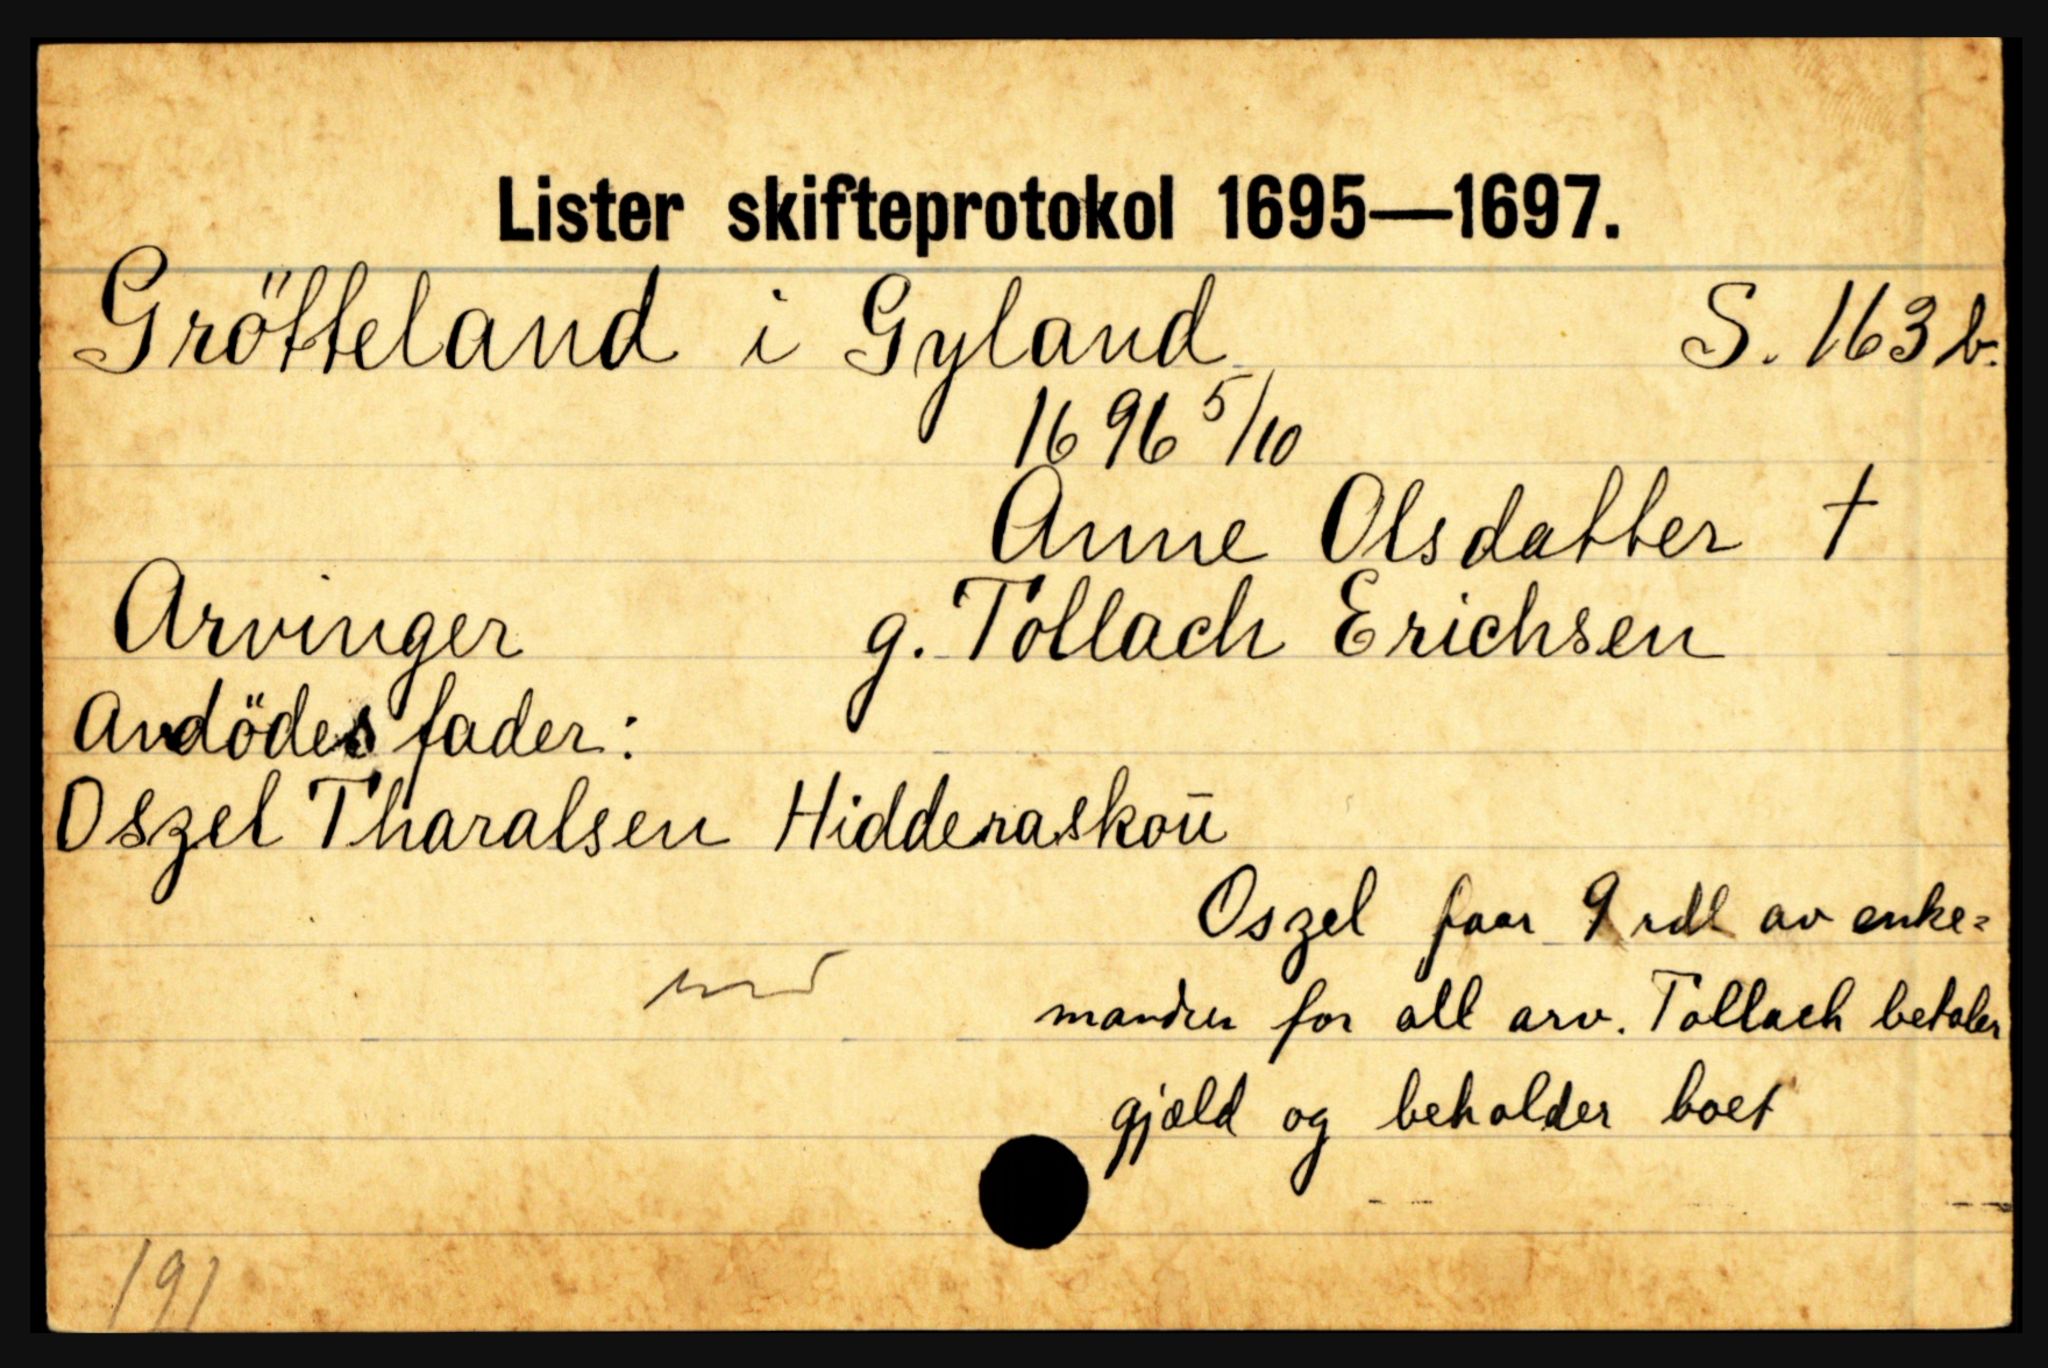 Lister skifteprotokol 1695—1697.
Grötteland i Gyland S. 163 b.
1696 5/10
Anne Olsdatter †
Arvinger g. Tollach Erichsen
Avdödes fader:
Oszel Tharalsen Hidderaskoū
Oszel faar 9 rdl av enke=
manden for all arv. Tollach betaler
gjæld og beholder boet
191